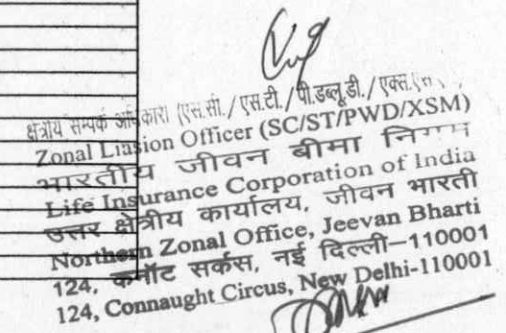 क्षेत्रीय सम्पर्क अधिकारी (एस.सी./ एस.टी. / पी.डब्लू.डी. / एक्स.एस.
Zonal Liasion Officer (SC/ST/PWD/XSM)
भारतीय जीवन बीमा निगम
Life Insurance Corporation of India
उत्तर क्षेत्रीय कार्यालय, जीवन भारती
Northern Zonal Office, Jeevan Bharti
124, कनॉट सर्कस, नई दिल्ली-110001
124, Connaught Circus, New Delhi-110001